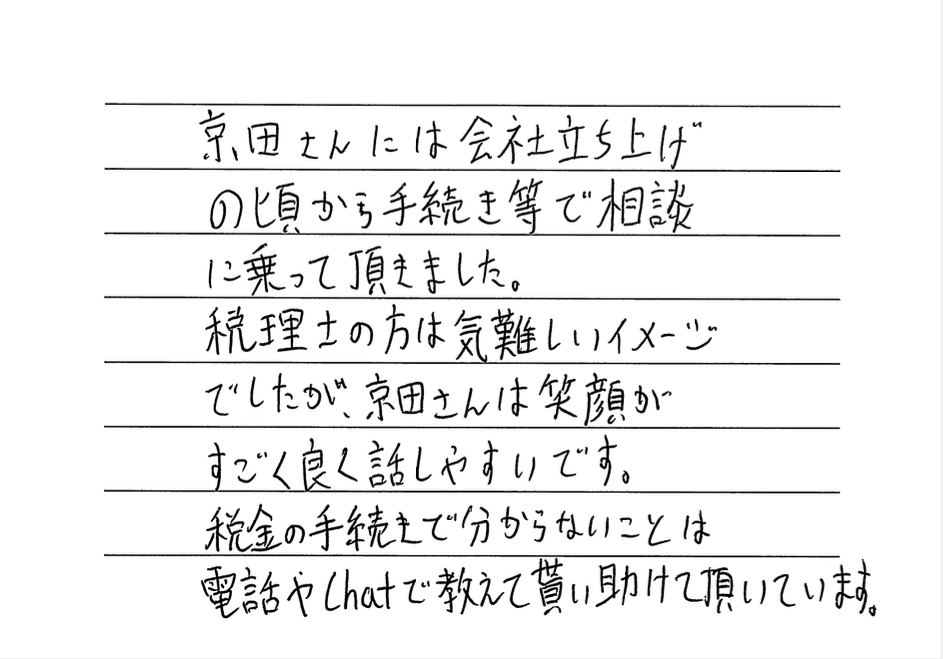 京田さんには会社立ち上げ
の頃から手続き等で相談
に乗って頂きました。
税理士の方は気難しいイメージ
でしたが、京田さんは笑顔が
すごく良く話しやすいです。
税金の手続きで分からないことは
電話やChatで教えて貰い助けて頂いています。